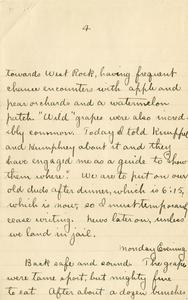 4
towards West Rock, having frequent
chance encounters with apple and
pear orchards and a watermelon
patch. "Wild" grapes were also incred-
ibly common. Today I told Krumpful
and Humphrey about it and they
have engaged me as a guide to "show
them where". We are to put on our
old duds after dinner, which is 6:15,
which is now, so I must temporary
cease writing. News later on, unless
we land in jail.
Monday Evening
Back safe and sounds. The grapes
were tame sport, but mighty fine
to eat. After about a dozen bunches